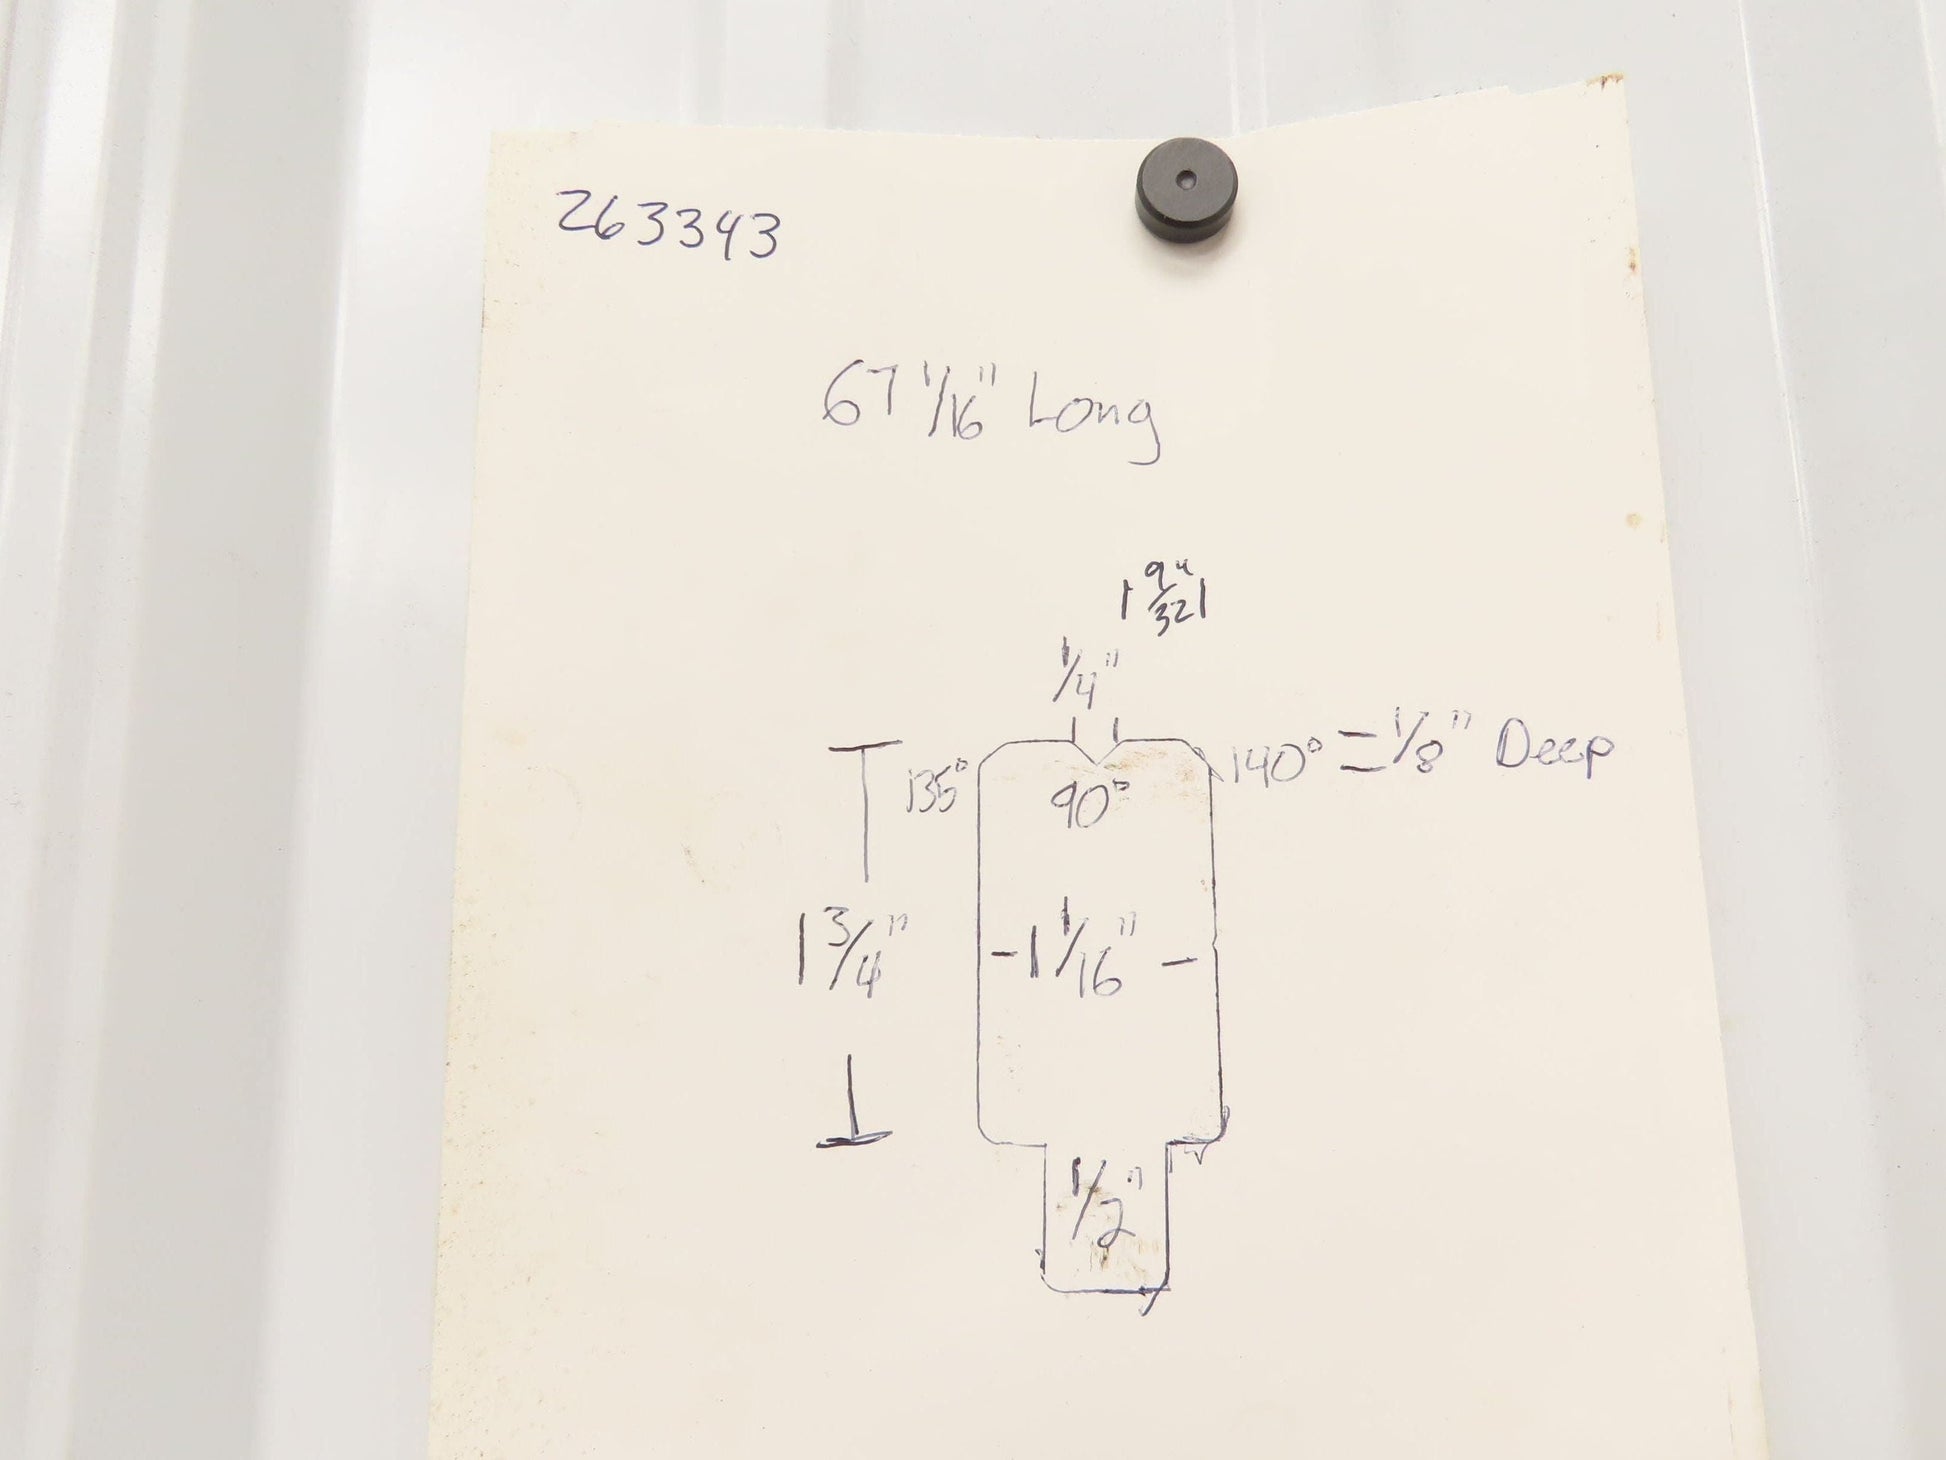 263343
67 1/16" Long
9/32"
1/4"
135°
90°
140° = 1/8" Deep
1 3/4"
- 1 1/16" -
1/2"